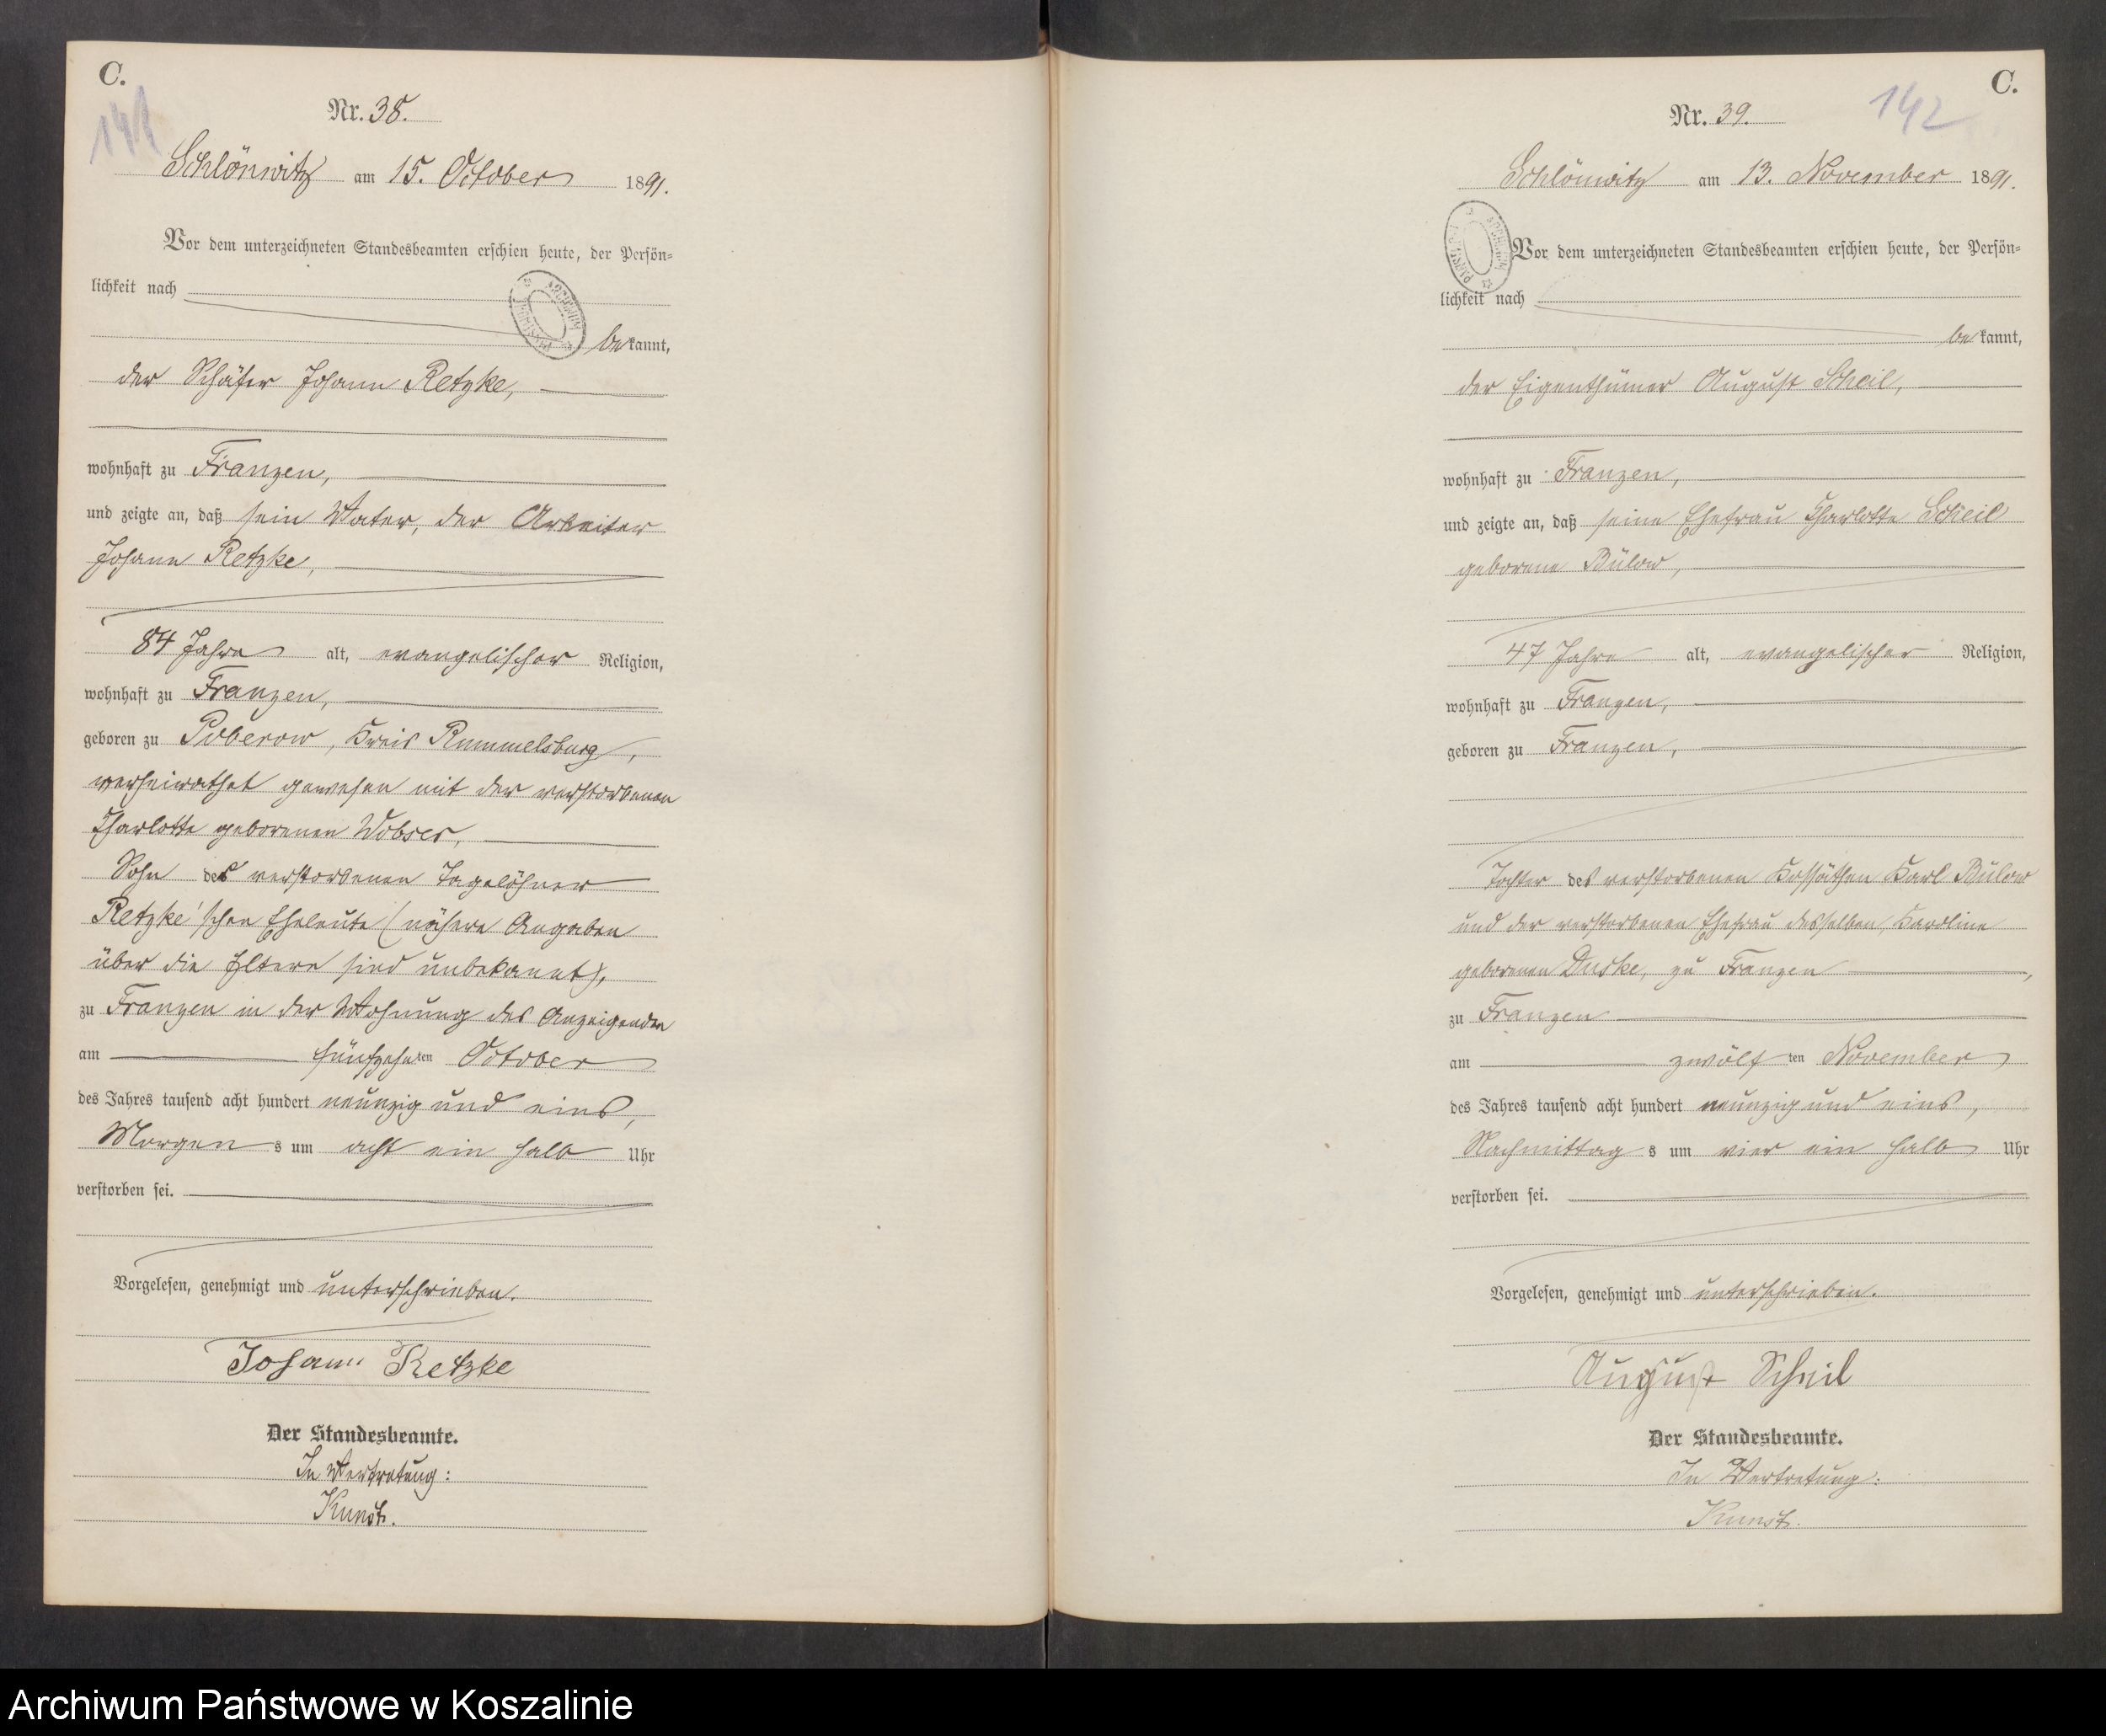 C.
141
Nr. 38.
Schlönwitz am 15. October 1891.
Vor dem unterzeichneten Standesbeamten erschien heute, der Persön-
lichkeit nach
bekannt,
der Schäfer Johann Retzke,
wohnhaft zu Franzen,
und zeigte an, daß sein Vater, der Arbeiter
Johann Retzke,
84 Jahre alt, evangelischer Religion,
wohnhaft zu Franzen,
geboren zu Poberow, Kreis Rummelsburg,
verheirathet gewesen mit der verstorbenen
Charlotte geborenen Wobser,
Sohn des verstorbenen Tagelöhner
Retzke'schen Eheleute (nähere Angaben
über die Eltern sind unbekannt),
zu Franzen in der Wohnung des Anzeigenden
am fünfzehnten October
des Jahres tausend acht hundert neunzig und eins,
Morgens um acht ein halb Uhr
verstorben sei.
Vorgelesen, genehmigt und unterschrieben.
Johann Retzke
Der Standesbeamte.
In Vertretung:
Kunst.
C.
142
Nr. 39.
Schlönwitz am 13. November 1891.
Vor dem unterzeichneten Standesbeamten erschien heute, der Persön-
lichkeit nach
bekannt,
der Eigenthümer August Scheil,
wohnhaft zu Franzen,
und zeigte an, daß seine Ehefrau Charlotte Scheil
geborene Bülow,
47 Jahre alt, evangelischer Religion,
wohnhaft zu Franzen,
geboren zu Franzen,
Tochter des verstorbenen Kossäthen Karl Bülow
und der verstorbenen Ehefrau desselben, Karoline
geborenen Duske, zu Franzen,
zu Franzen
am zwölften November
des Jahres tausend acht hundert neunzig und eins,
Nachmittags um vier ein halb Uhr
verstorben sei.
Vorgelesen, genehmigt und unterschrieben.
August Scheil
Der Standesbeamte.
In Vertretung:
Kunst.
Archiwum Państwowe w Koszalinie